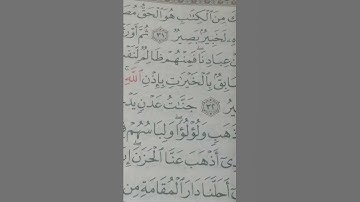 ك مِنَ ٱلْكِتَٰبِ هُوَ ٱلْحَقُّ مُصَ
لَخَبِيرُۢ بَصِيرٌ ٣١ ثُمَّ أَوْرَ
عِبَادِنَا ۖ فَمِنْهُمْ ظَالِمٌ لِّنَفْ
بِٱلْخَيْرَٰتِ بِإِذْنِ ٱللَّهِ ۚ
يرُ ٣٢ جَنَّٰتُ عَدْنٍ يَدْ
ذَهَبٍ وَلُؤْلُؤًا ۖ وَلِبَاسُهُمْ فِ
ىٓ أَذْهَبَ عَنَّا ٱلْحَزَنَ ۖ إِ
ىٓ أَحَلَّنَا دَارَ ٱلْمُقَامَةِ مِن